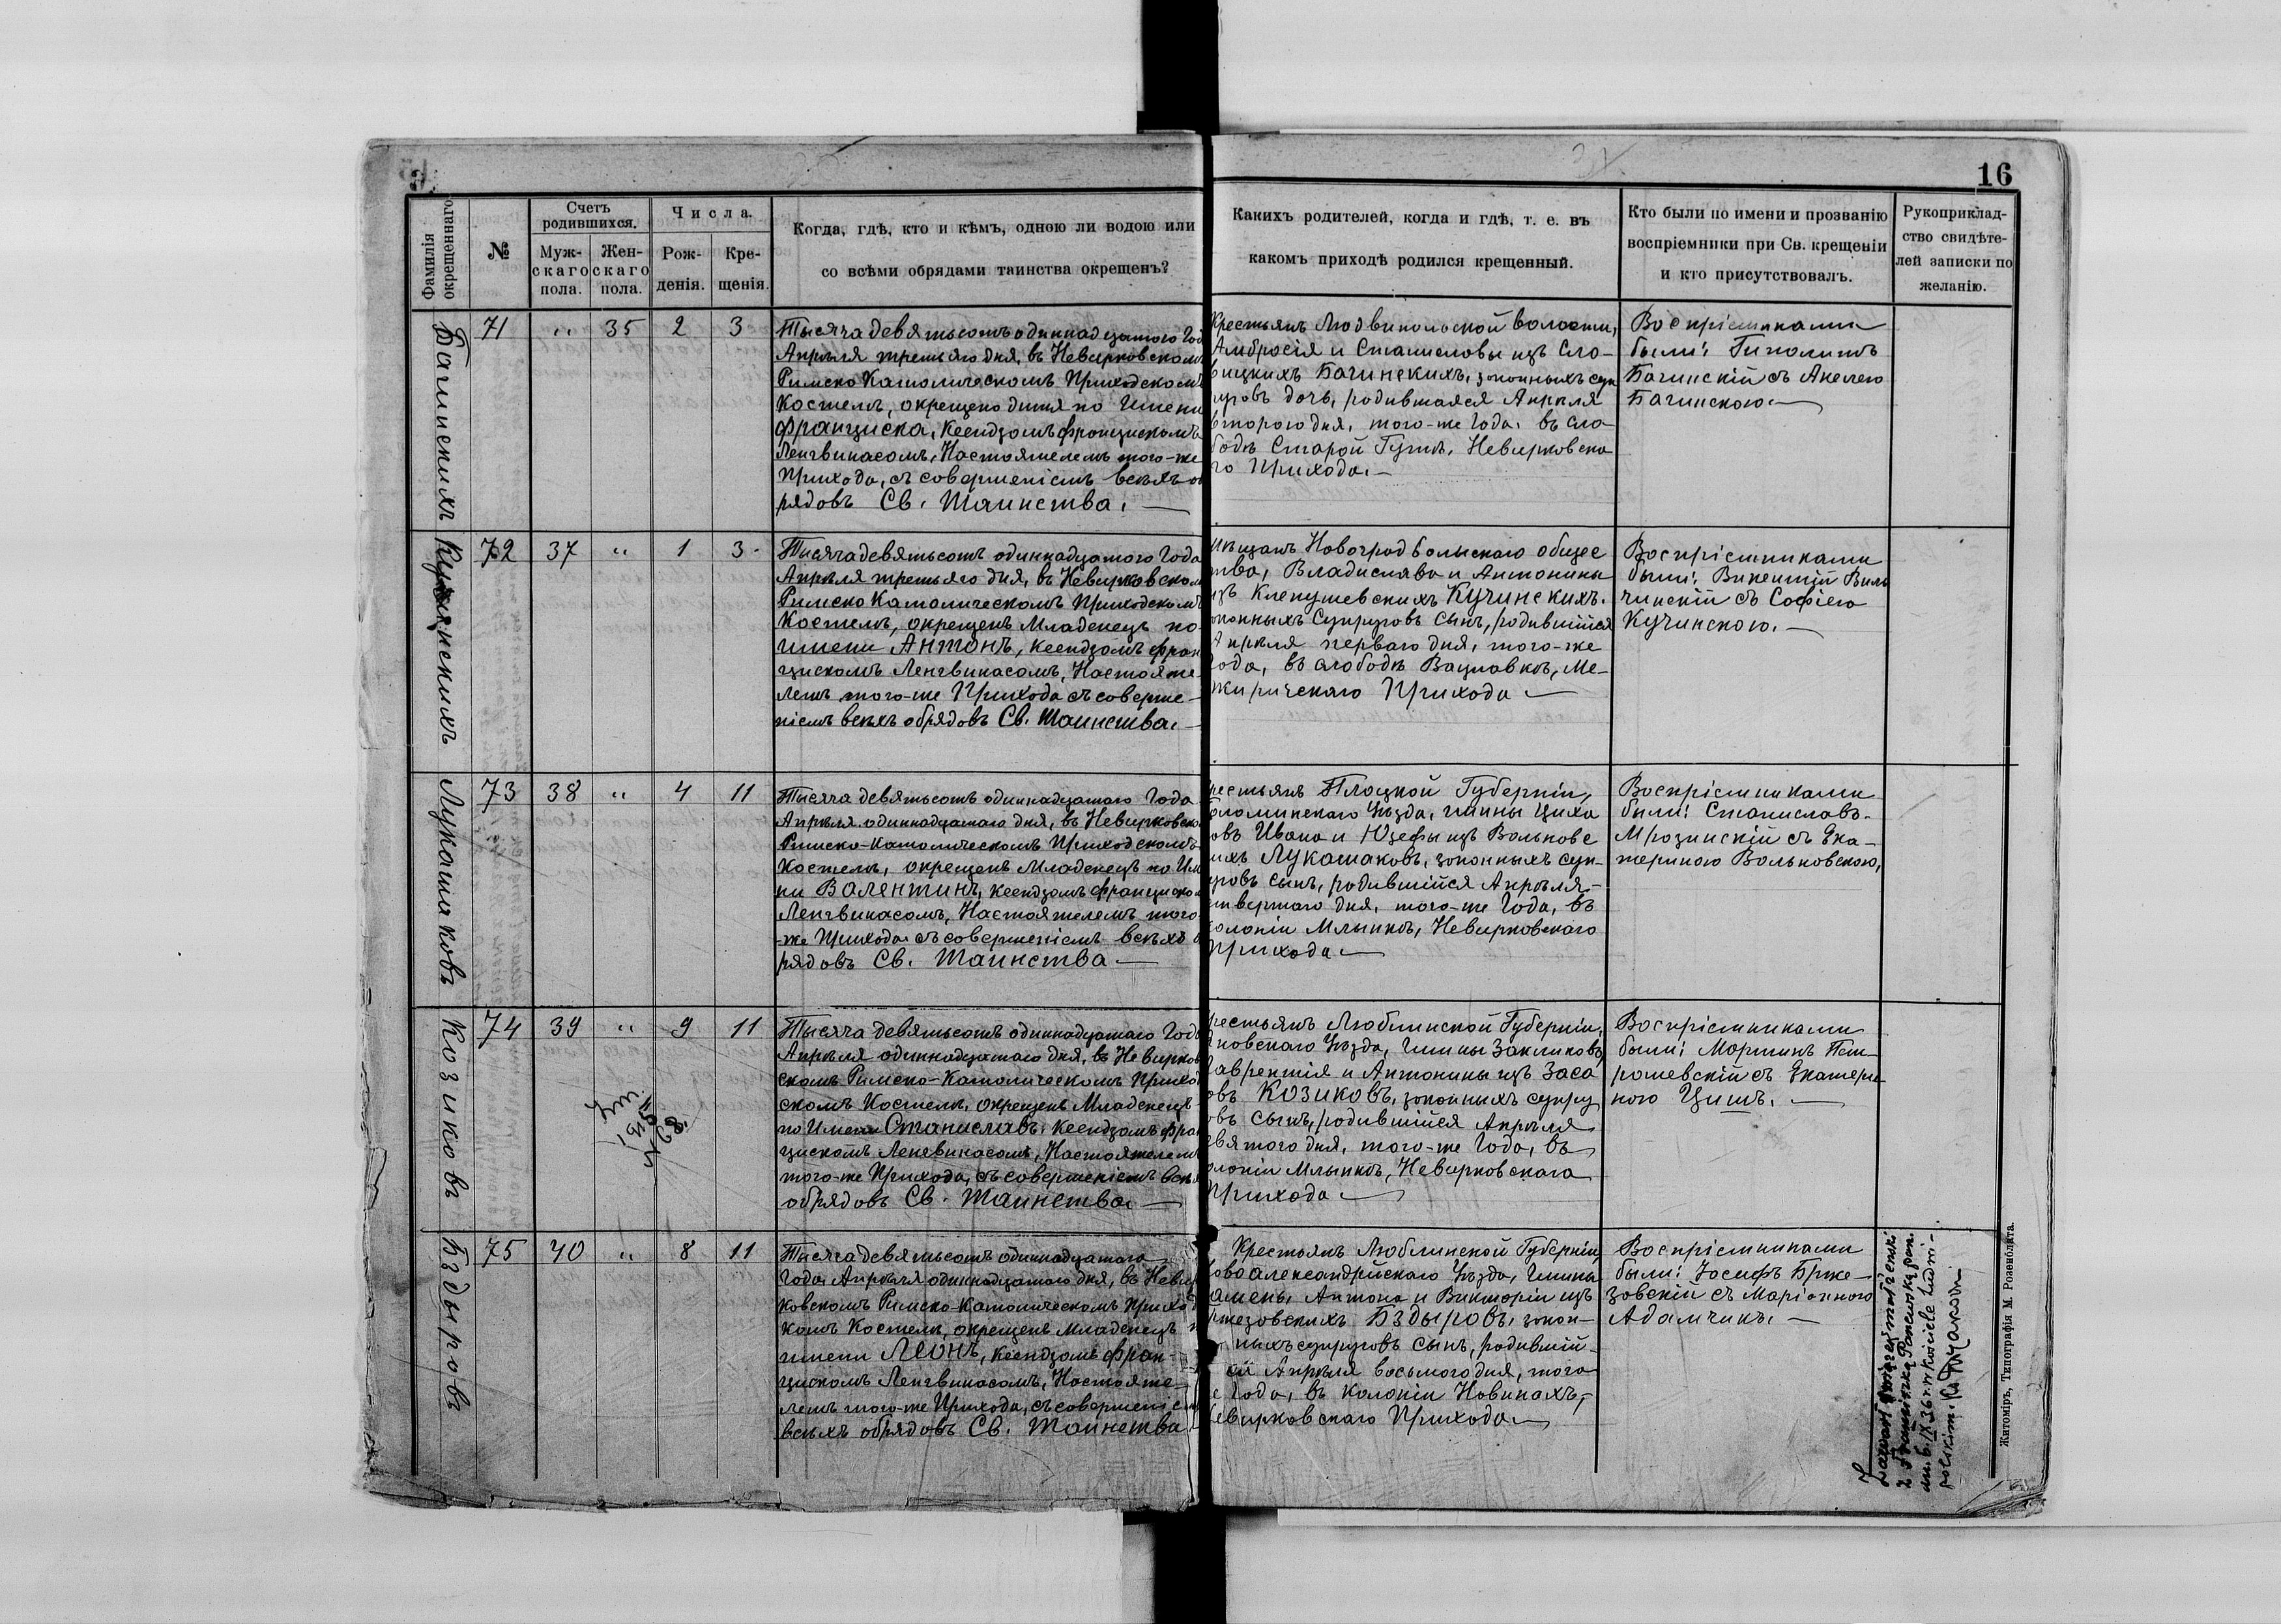 16
Фамилія окрещеннаго.
№
Счетъ родившихся.
Муж-
скаго
пола.
Жен-
скаго
пола.
Числа.
Рож-
денія.
Кре-
щенія.
Когда, гдѣ, кто и кѣмъ, одною ли водою или
со всѣми обрядами таинства окрещенъ?
Какихъ родителей, когда и гдѣ, т. е. въ
какомъ приходѣ родился крещенный.
Кто были по имени и прозванію
воспріемники при Св. крещеніи
и кто присутствовалъ.
Рукоприклад-
ство свидѣте-
лей записки по
желанію.
Багинскихъ
71 " 35 2 3
Тысяча девятьсотъ одиннадцатого Год
Апрѣля третьяго дня, въ Невирковском
Римско Католическомъ Приходскомъ
Костелѣ, окрещено дитя по Имени
Франциска, Ксендзомъ Францискомъ
Ленгвинасомъ, Настоятелемъ того-же
Прихода, съ совершеніемъ всѣхъ об
рядовъ Св. Таинства.
Крестьянъ Людвипольской волости,
Амбросія и Станиславы изъ Сло-
вицкихъ Багинскихъ, законныхъ суп
руговъ дочь, родившаяся Апрѣля
второго дня, того-же Года, въ сло-
бодѣ Старой Гутѣ, Невирковска
го Прихода.
Воспріемниками
были: Гиполитъ
Багинскій съ Анелею
Багинскою.
Кучинскихъ
72 37 " 1 3
Тысяча девятьсотъ одиннадцатого Года
Апрѣля третьяго дня, въ Невирковском
Римско Католическомъ Приходскомъ
Костелѣ, окрещенъ Младенецъ по
имени Антонъ, Ксендзомъ Фран
цискомъ Ленгвинасомъ, Настояте-
лемъ того-же Прихода съ соверше-
ніемъ всѣхъ обрядовъ Св. Таинства.
Мѣщанъ Новоградволынскаго общес
тва, Владислава и Антонины
изъ Клепушевскихъ Кучинскихъ.
законныхъ Супруговъ сынъ, родившійся
Апрѣля перваго дня, того-же
Года, въ слободѣ Вацлавкѣ, Ме-
жирическаго Прихода
Воспріемниками
были: Викентій Виль
чинскій съ Софіею
Кучинскою.
Лукашаковъ
73 38 " 4 11
Тысяча девятьсотъ одиннадцатаго Года
Апрѣля одиннадцатаго дня, въ Невирковско
Римско-Католическомъ Приходскомъ
Костелѣ, окрещенъ Младенецъ по Име
ни Валентинъ, Ксендзомъ Францискомъ
Ленгвинасомъ, Настоятелемъ того
-же Прихода съ совершеніемъ всѣхъ об
рядовъ Св. Таинства
рестьянъ Плоцкой Губерніи,
Уѣзда, гмины
овъ Ивана и Юзефы изъ Вольковс
ихъ Лукашаковъ, законныхъ суп-
уговъ сынъ, родившійся Апрѣля
етвертаго дня, того-же Года, въ
олоніи Млынкѣ, Невирковскаго
Прихода
Воспріемниками
были: Станиславъ
Мрозинскій съ Ека-
териною Вольковскою,
Козиковъ
74 39 " 9 11
Тысяча девятьсотъ одиннадцатаго Года
Апрѣля одиннадцатаго дня, въ Невирков
скомъ Римско-Католическомъ Приход
скомъ Костелѣ, окрещенъ Младенецъ
по Имени Станиславъ, Ксендзомъ Фран
цискомъ Ленгвинасомъ, Настоятелем
того-же Прихода, съ совершеніемъ всѣх
обрядовъ Св. Таинства.
рестьянъ Люблинской Губерніи,
Яновскаго Уѣзда, Гмины Закликовъ,
Лаврентія и Антонины изъ Заса
овъ Козиковъ, законныхъ супру
овъ сынъ, родившійся Апрѣля
евятого дня, того-же Года, въ
олоніи Млынкѣ, Невирковскаго
Прихода
Воспріемниками
были: Мартинъ Пет-
рошевскій съ Екатери-
ною Цишъ.
Бздыровъ
75 40 " 8 11
Тысяча девятьсотъ одиннадцатаго
Года Апрѣля одиннадцатаго дня, въ Невир
ковскомъ Римско-Католическомъ Приход
комъ Костелѣ, окрещенъ Младенецъ п
имени Леонъ, Ксендзомъ Фран-
цискомъ Ленгвинасомъ, Настояте-
лемъ того-же Прихода, съ совершеніем
всѣхъ обрядовъ Св. Таинства
Крестьянъ Люблинской Губерніи,
ово Александрійскаго Уѣзда, Гмины
амень, Антона и Викторіи изъ
ржезовскихъ Бздыровъ, закон-
ныхъ супруговъ сынъ, родившій-
ся Апрѣля восьмого дня, того
е Года, въ Колоніи Новинахъ,
евирковскаго Прихода
Воспріемниками
были: Іосифъ Брже-
зовскій съ Маріанною
Адамчикъ.
Zawarł związek małżeński
z Franciszką
dn. 6.IX.36 r. w kościele Ludwi-
polskim.
Житоміръ, Типографія М. Розенблата.